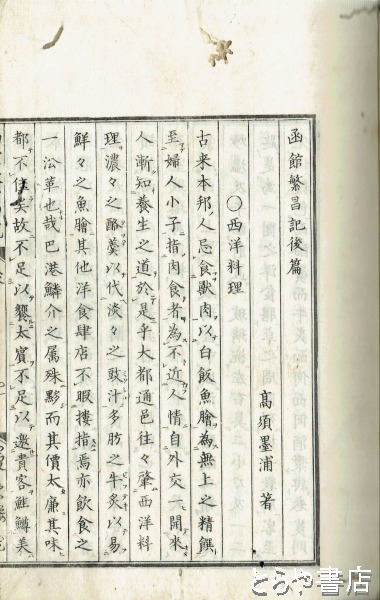 函館繁昌記後篇
高須墨浦 著
○西洋料理
古来本邦人忌食獣肉以白飯魚膾為無上之精饌
至婦人小子指肉食者為不近人情自外交一開來
人漸知養生之道於是乎大都通邑往々肇西洋料
理濃々之酪羮以代淡々之豉汁多肪之牛炙以易
鮮々之魚膾其他洋食肆店不暇搂指焉亦飲食之
一沿革也哉巴港鱗介之属殊夥而其價太廉其味
都不佳矣故不足以饗太賓不足以邀貴客鮭鱒美
とらや書店